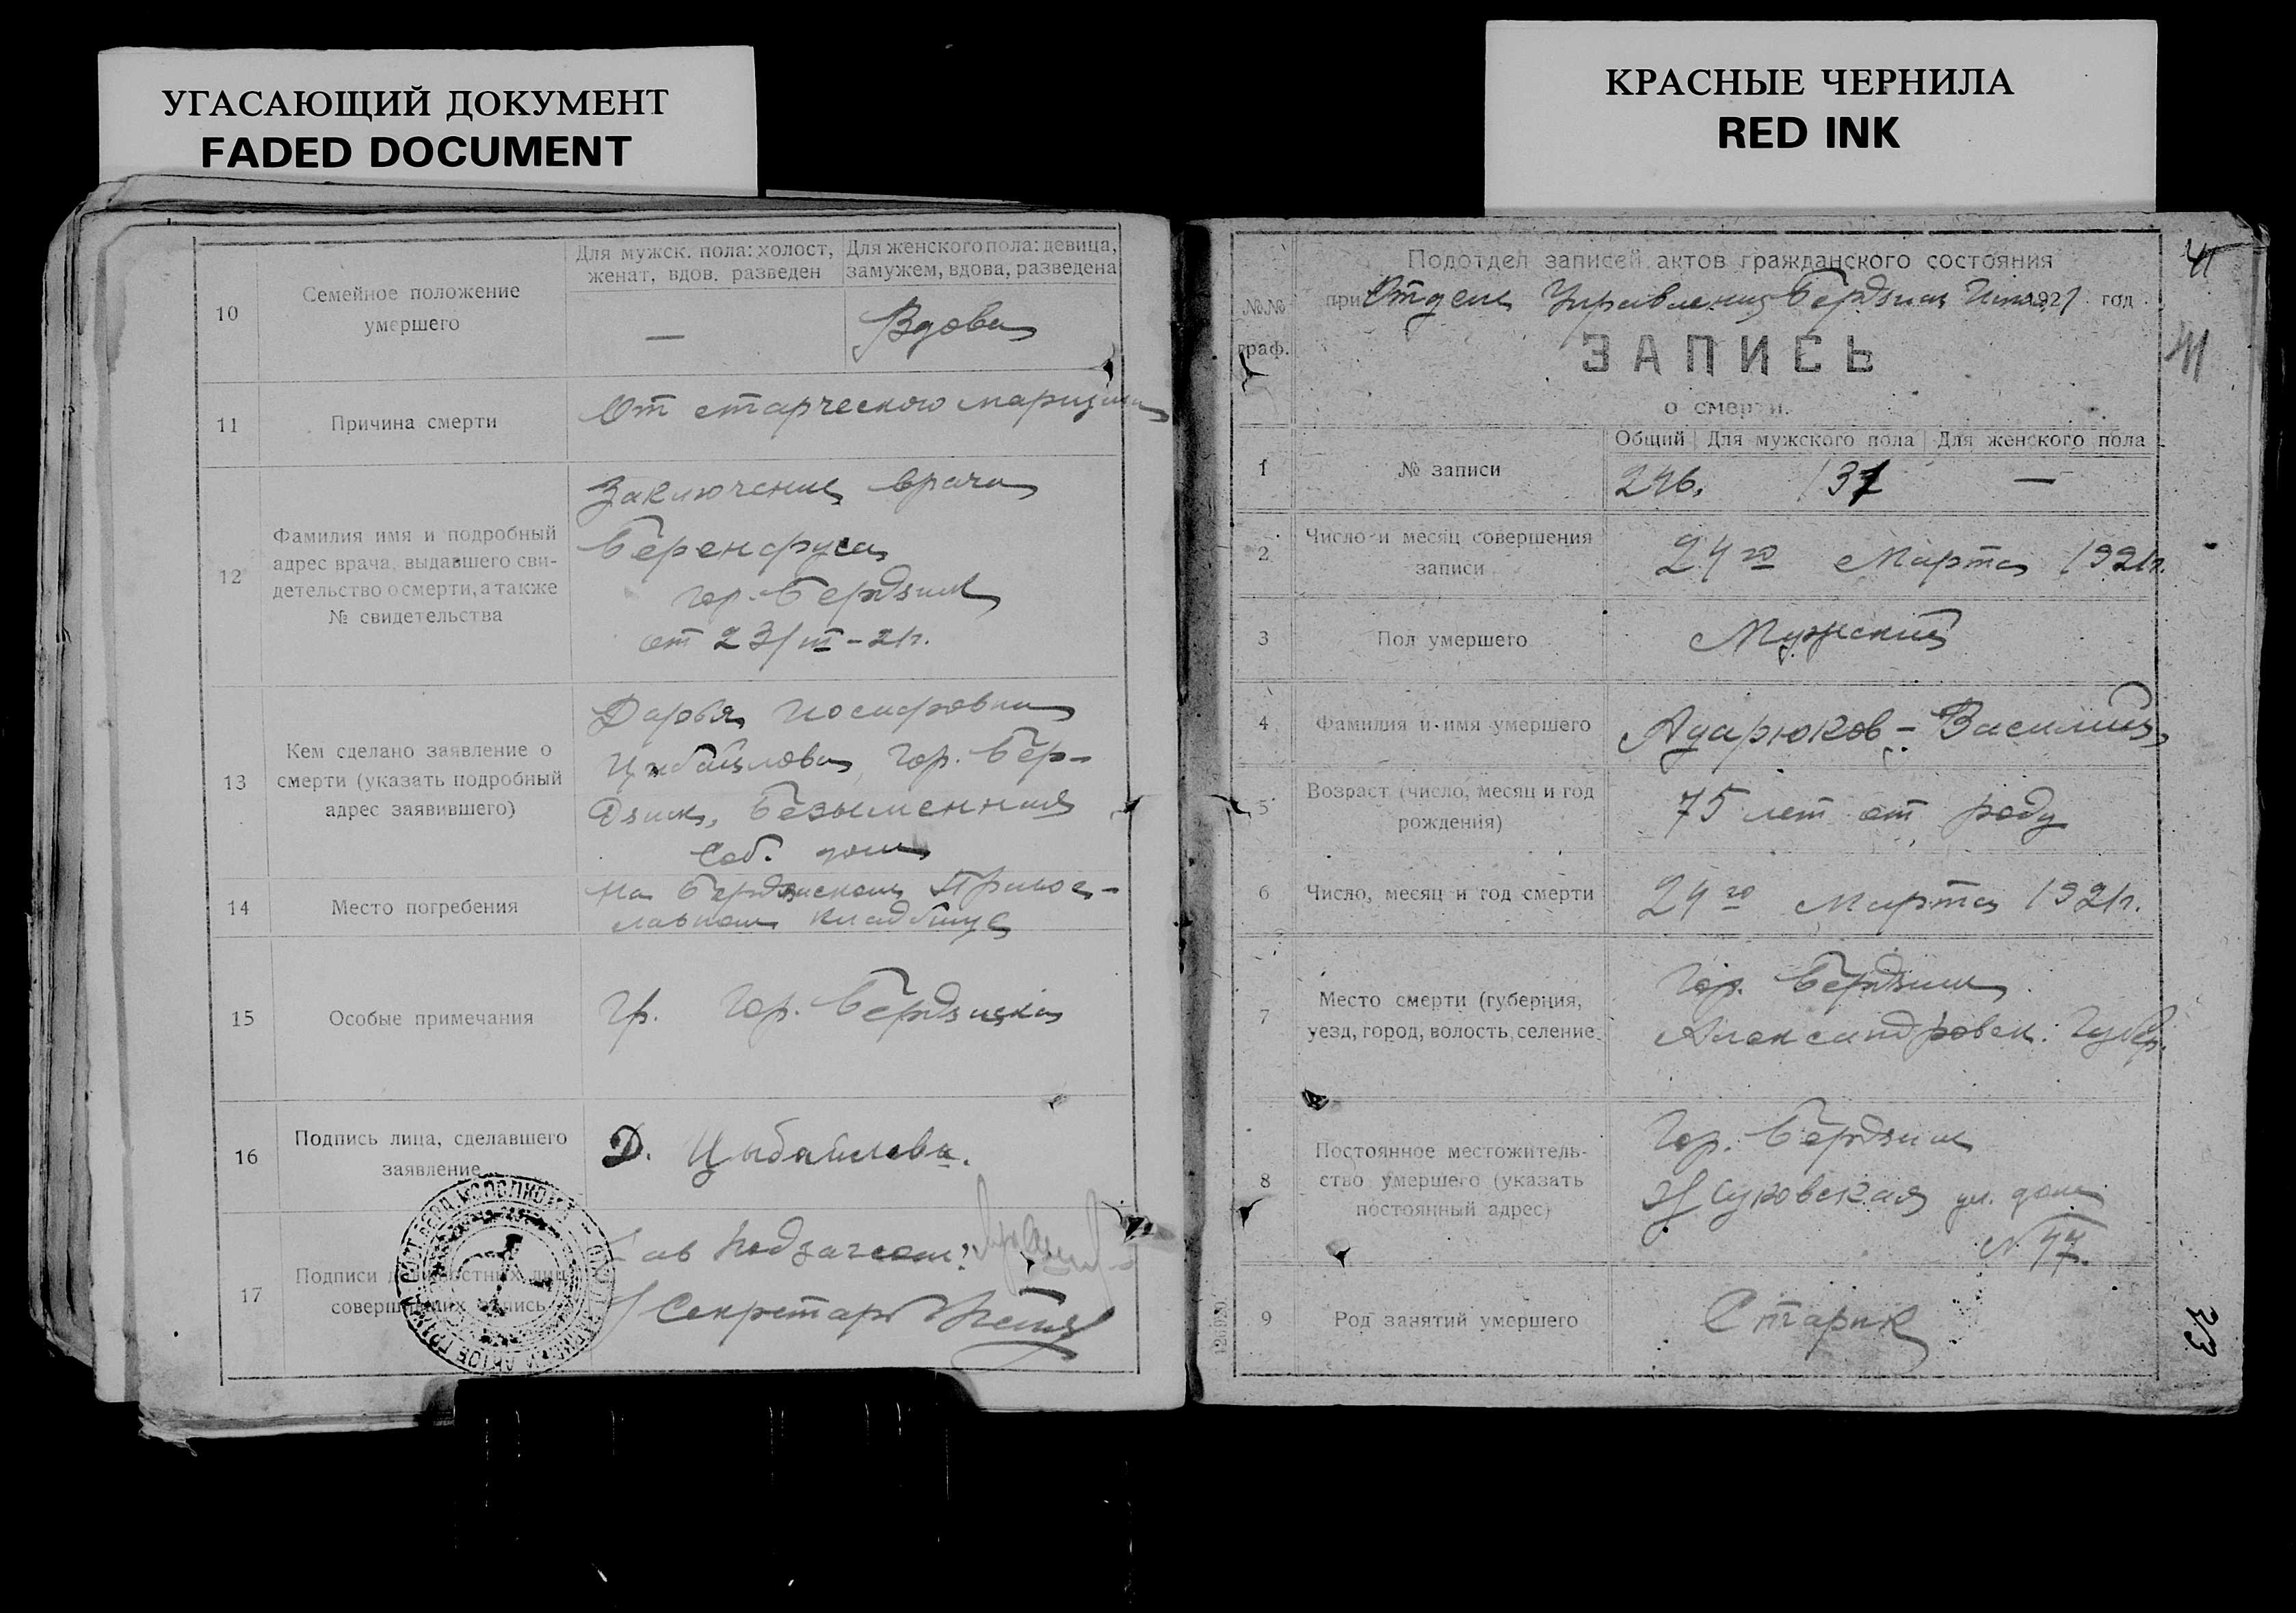 УГАСАЮЩИЙ ДОКУМЕНТ
FADED DOCUMENT
КРАСНЫЕ ЧЕРНИЛА
RED INK
10
Семейное положение
умершего
Для мужск. пола: холост,
женат, вдов. разведен
Для женского пола: девица,
замужем, вдова, разведена
—
Вдова
11
Причина смерти
От старческого маразма
12
Фамилия имя и подробный
адрес врача, выдавшего сви-
детельство о смерти, а также
№ свидетельства
Заключение врача
гор. Бердянск
от 23/III-21г.
13
Кем сделано заявление о
смерти (указать подробный
адрес заявившего)
Дарья Иосифовна
Цыбайлова, гор. Бер-
дянск, Безыменная
Соб. дом
14
Место погребения
на Бердянском Правос-
лавном кладбище
15
Особые примечания
Гр. гор. Бердянска
16
Подпись лица, сделавшего
заявление
Д. Цыбайлова.
17
Подписи должностных лиц
совершивших запись
Зав Подзагсом:
Секретарь
№№
граф.
Подотдел записей актов гражданского состояния
при Отделе Управления Бердянск 1921 год
ЗАПИСЬ
о смерти.
1
№ записи
Общий Для мужского пола Для женского пола
246. 137 —
2
Число и месяц совершения
записи
24го Марта 1921г.
3
Пол умершего
Мужской
4
Фамилия и имя умершего
Адарюков - Василий
5
Возраст (число, месяц и год
рождения)
75 лет от роду
6
Число, месяц и год смерти
24го Марта 1921г.
7
Место смерти (губерния,
уезд, город, волость, селение
Гор. Бердянск
Александровск. Губер.
8
Постоянное местожитель-
ство умершего (указать
постоянный адрес)
Гор. Бердянск
Жуковская ул. дом
N 47.
9
Род занятий умершего
Старик
41